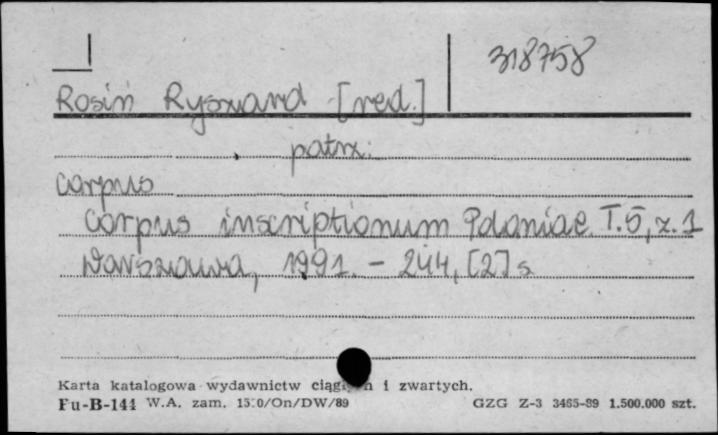 318758
Rosin Ryszard [red.]
patrz:
corpus
Corpus inscriptionum Poloniae. T.5, z.1
Warszawa, 1991. - 244, [2] s
Karta katalogowa wydawnictw ciągłych i zwartych.
Fu-B-144 W.A. zam. 15:0/On/DW/89 GZG Z-3 3465-89 1.500.000 szt.